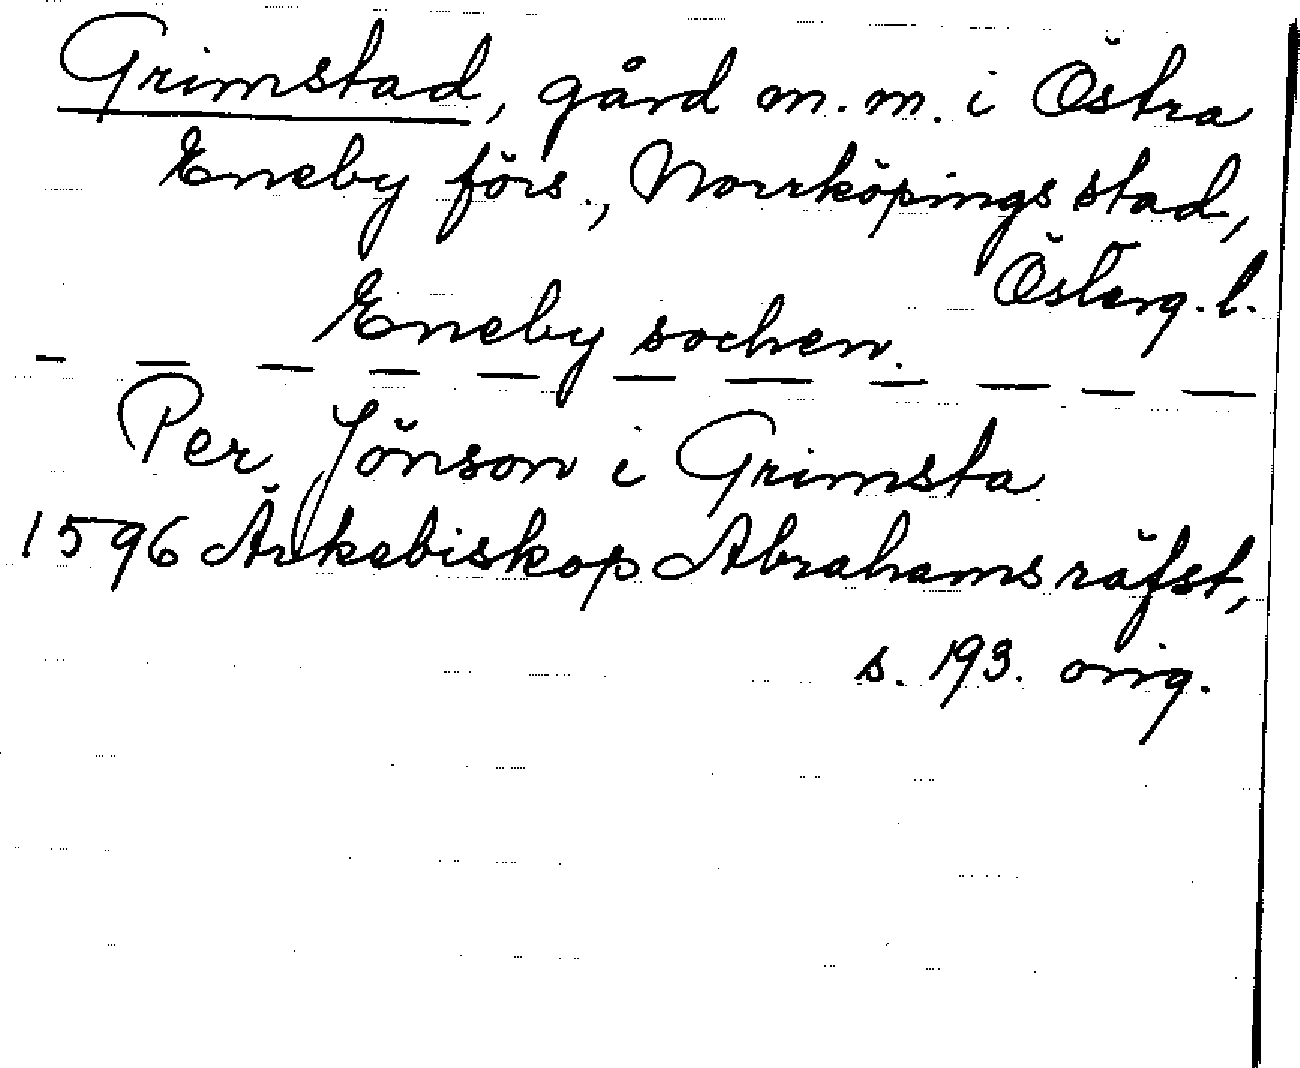 Grimstad, gård m. m. i Östra
Eneby förs., Norrköpings stad,
Österg. l.
Eneby socken.
Per Jönson i Grimsta
1596 Ärkebiskop Abrahams räfst,
s. 193. orig.